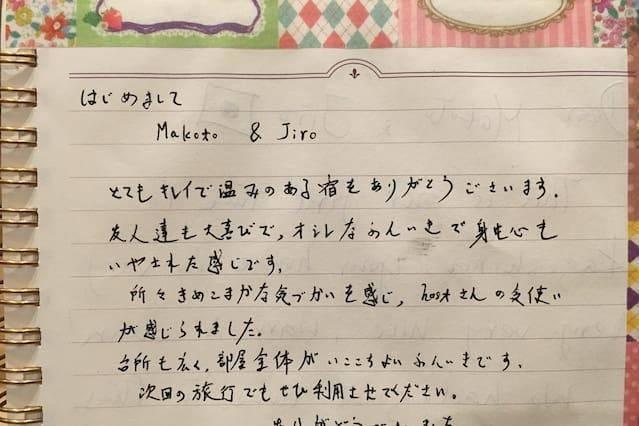 はじめまして
Makoto & Jiro
とてもキレイで温みのある宿をありがとうございます.
友人達も大喜びで,オシレなふんいきで身も心も
いやされた感じです.
所々きめこまかな気づかいを感じ, hostさんの気使い
が感じられました.
台所も広く,部屋全体がいここちよいふんいきです.
次回の旅行でもぜひ利用させてください。